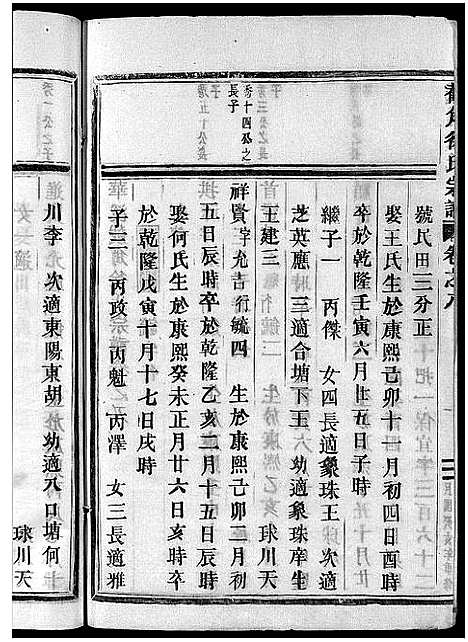 徐氏宗譜 卷之八
號民田三分正
娶王氏生於康熙己卯十一月初四日酉時
卒於乾隆壬寅六月廿五日子時
繼子一 丙傑 女四長適象珠王 次適
芝英應 三適合塘下王 幼適象珠牽生
王建三 球川天
秀十四公之長子
祥賢 字允吉行毓四 生於康熙己卯二月初
五日辰時卒於乾隆乙亥二月十五日辰時
娶何氏生於康熙癸未正月廿六日亥時卒
於乾隆戊寅十月十七日戌時
子三 丙政 丙魁 丙澤 女三長適雅
川李 次適東陽東胡 幼適八口塘何
球川天